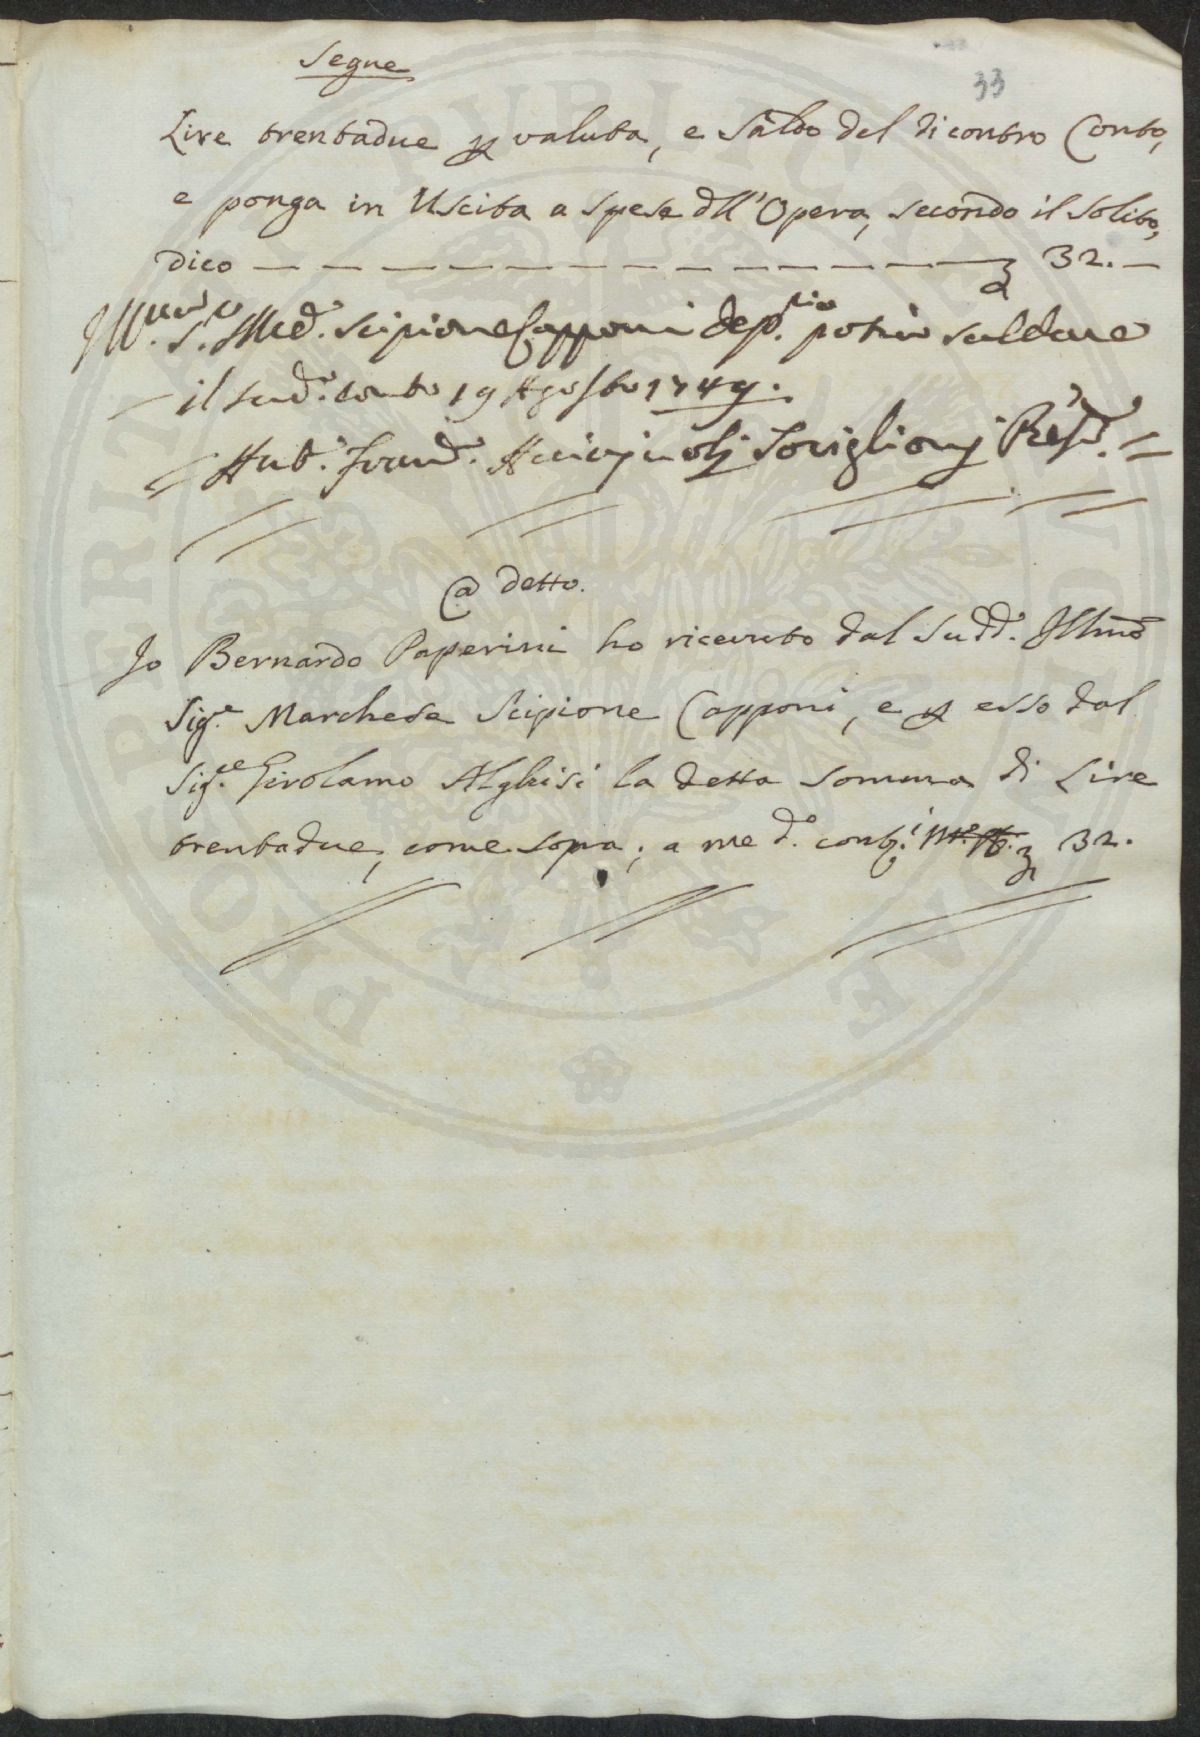 Segue
33
Lire trentadue p valuta, e Saldo del dicontro Conto,
e ponga in Uscita a spese dll'Opera, secondo il Solito,
dico — — — — — — — — — — 32. —
Scipione Capponi potrà saldare
il sud.o conto 19 Agosto 1749.
@ detto.
Io Bernardo Paperini ho ricevuto dal Sudd.o Illmo
Sig.e Marchese Scipione Capponi, e p esso dal
Sig.e Girolamo Alghisi la detta somma di Lire
trentadue, come sopra; a me d.o cont.i 32.